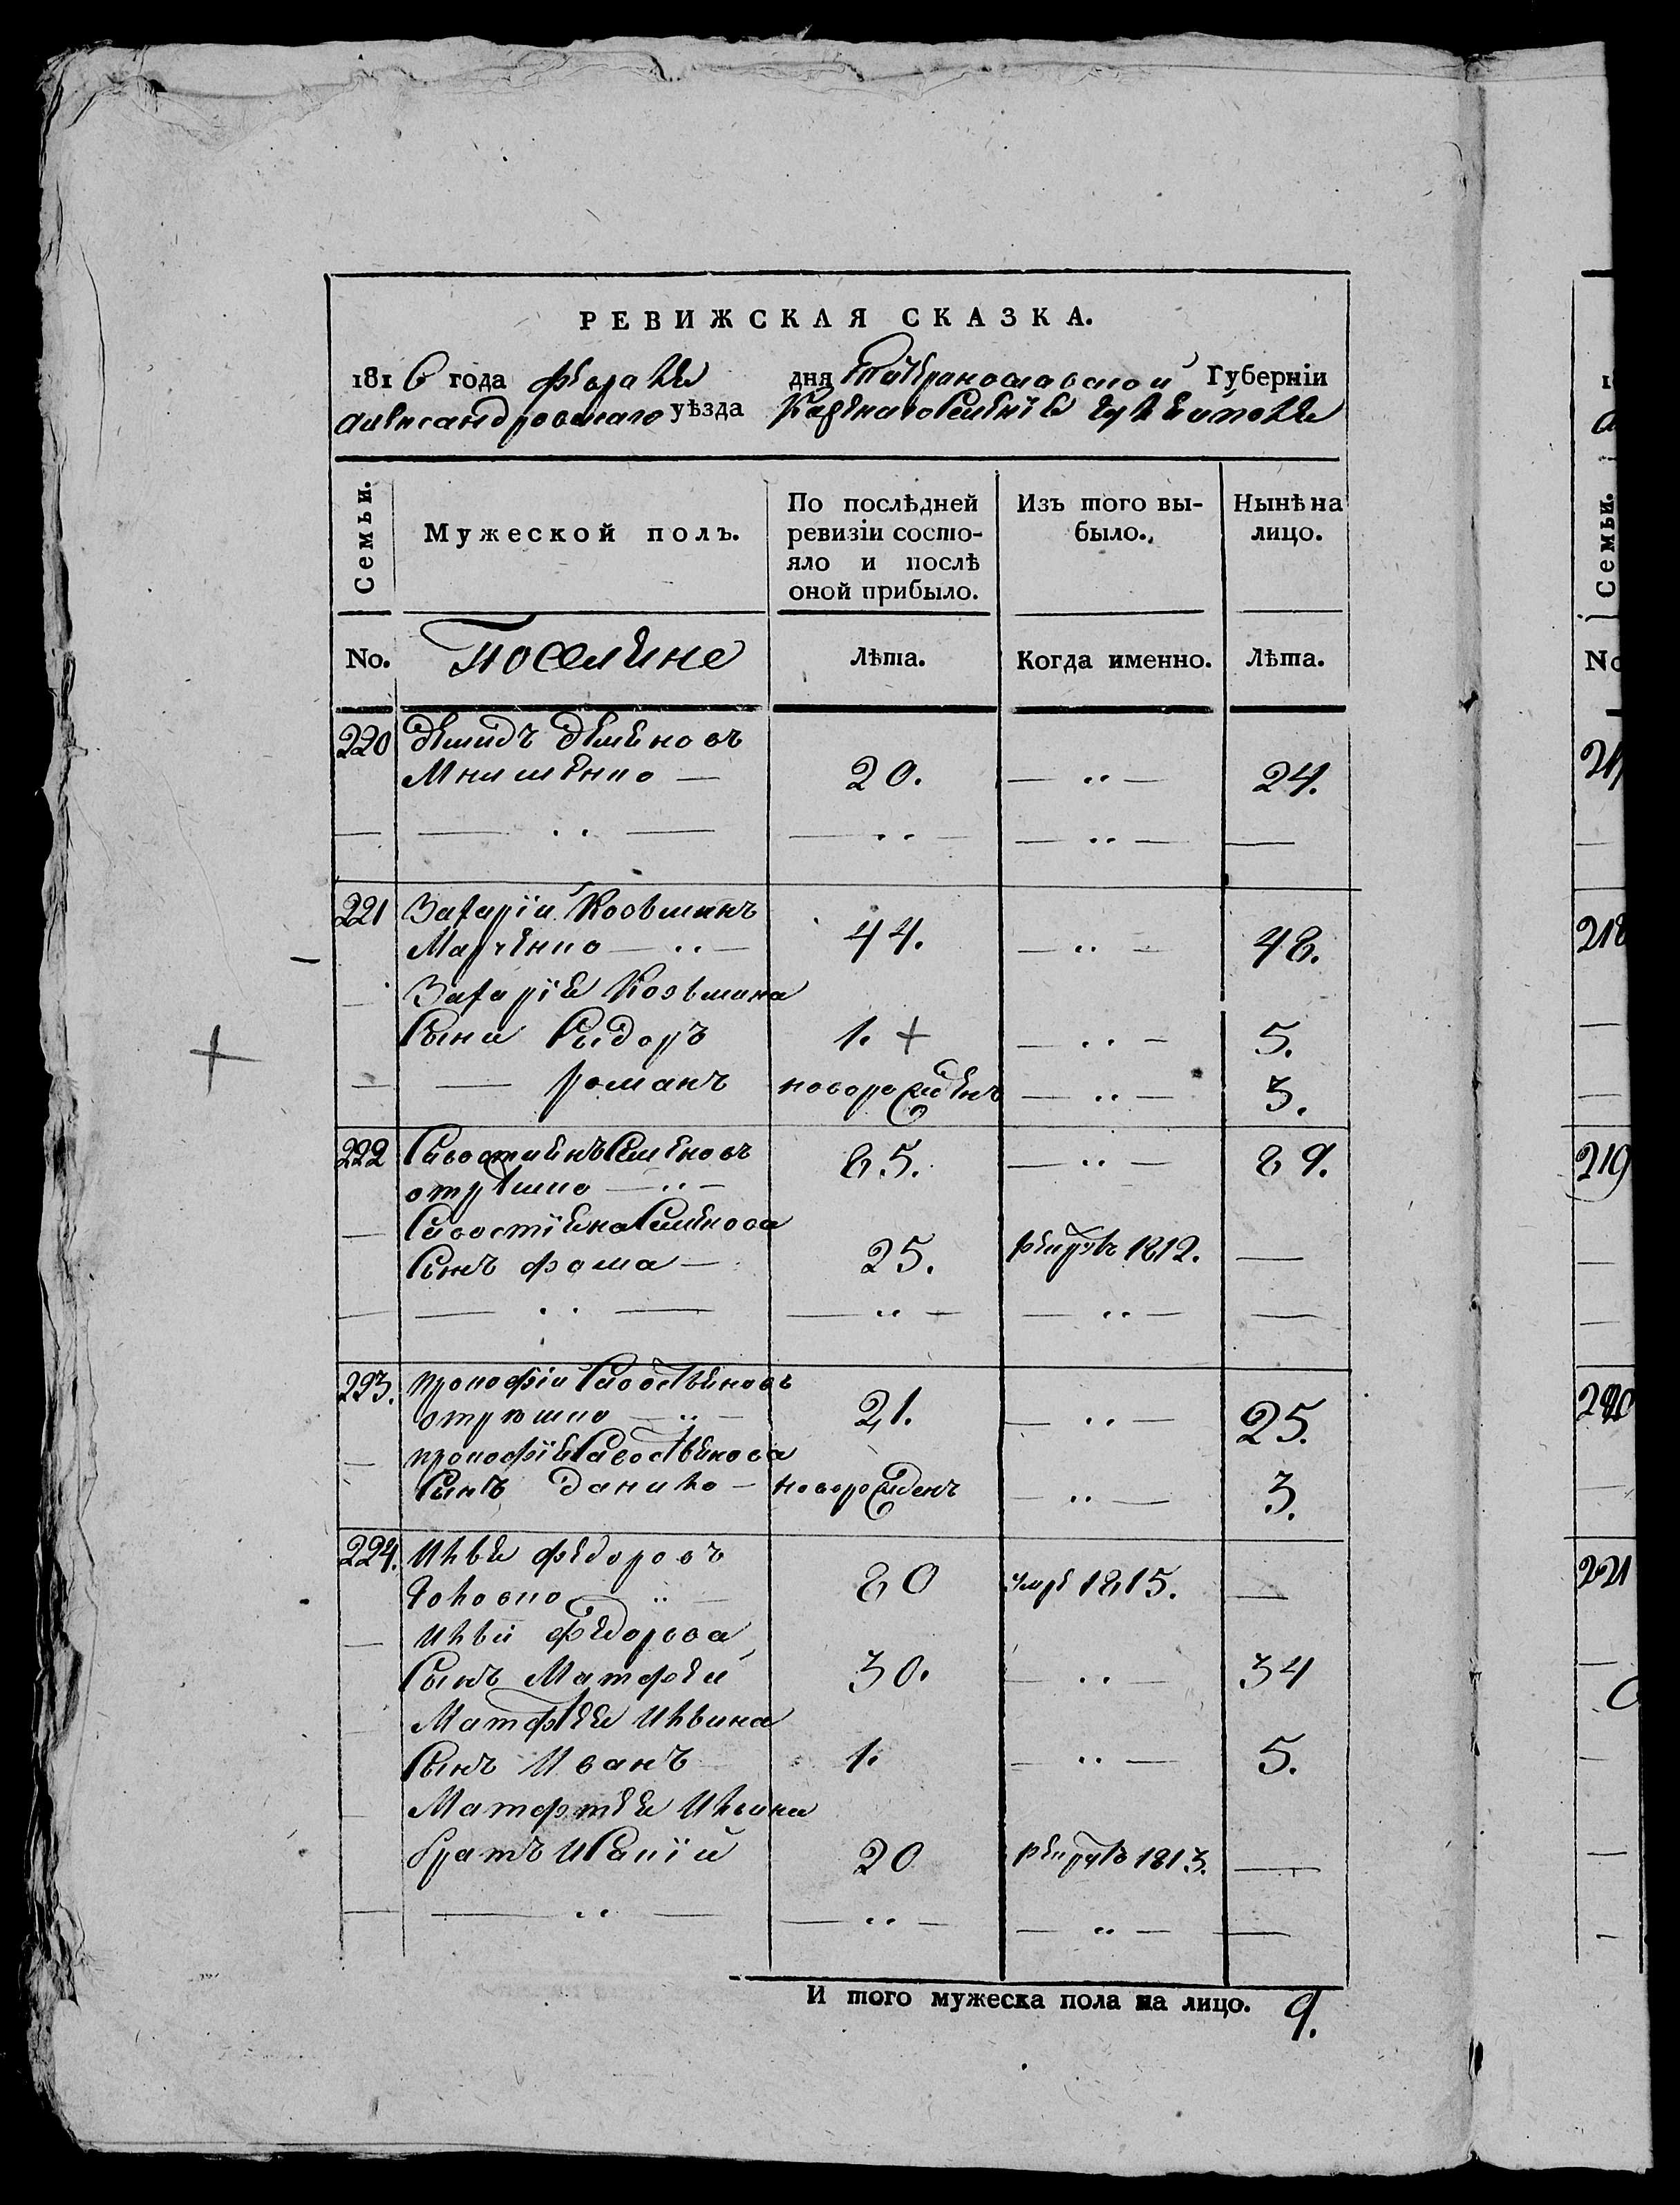 РЕВИЖСКАЯ СКАЗКА.
1816 года февраля дня Екатеринославской Губерніи
Александровскаго уѣзда Казеннаго селенія
Семьи.
Мужеской полъ.
По послѣдней ревизіи состо-
яло и послѣ
оной прибыло.
Изъ того вы-
было.
Нынѣ на
лицо.
No. Поселяне Лѣта. Когда именно. Лѣта.
220 Демидъ Семеновъ
20. — ·· — 24.
— — ·· — — ·· — — ·· — —
221 Захарій Козьминъ
Марченко — ·· — 44. — ·· — 48.
— Захарія Козьмина
Сыни Сидоръ 1. + — ·· — 5.
— — романъ новорожденъ — ·· — 3.
222 Савостиянъ Семеновъ 85. — ·· — 89.
отрѣшко — ·· —
— Савостіяна Семенова
Сынъ фома — 25. рекрутъ 1812. —
— — ·· — — ·· — — ·· — —
223. прокофій Савостьяновъ
отрѣшко — ·· — 21. — ·· — 25.
— прокофія Савостьянова
Сынъ Данило — новорожденъ — ·· — 3.
224. Илья федоровъ
80 умре 1815. —
— Ильи федорова
Сынъ Матфей 30. — ·· — 34
— Матфея Ильина
Сынъ Иванъ 1. — ·· — 5.
— Матфея Ильина
братъ Евсѣй 20 рекрутъ 1813. —
— — ·· — — ·· — — ·· — —
И того мужеска пола на лицо. 9.
Семьи.
No
218
219
220
221